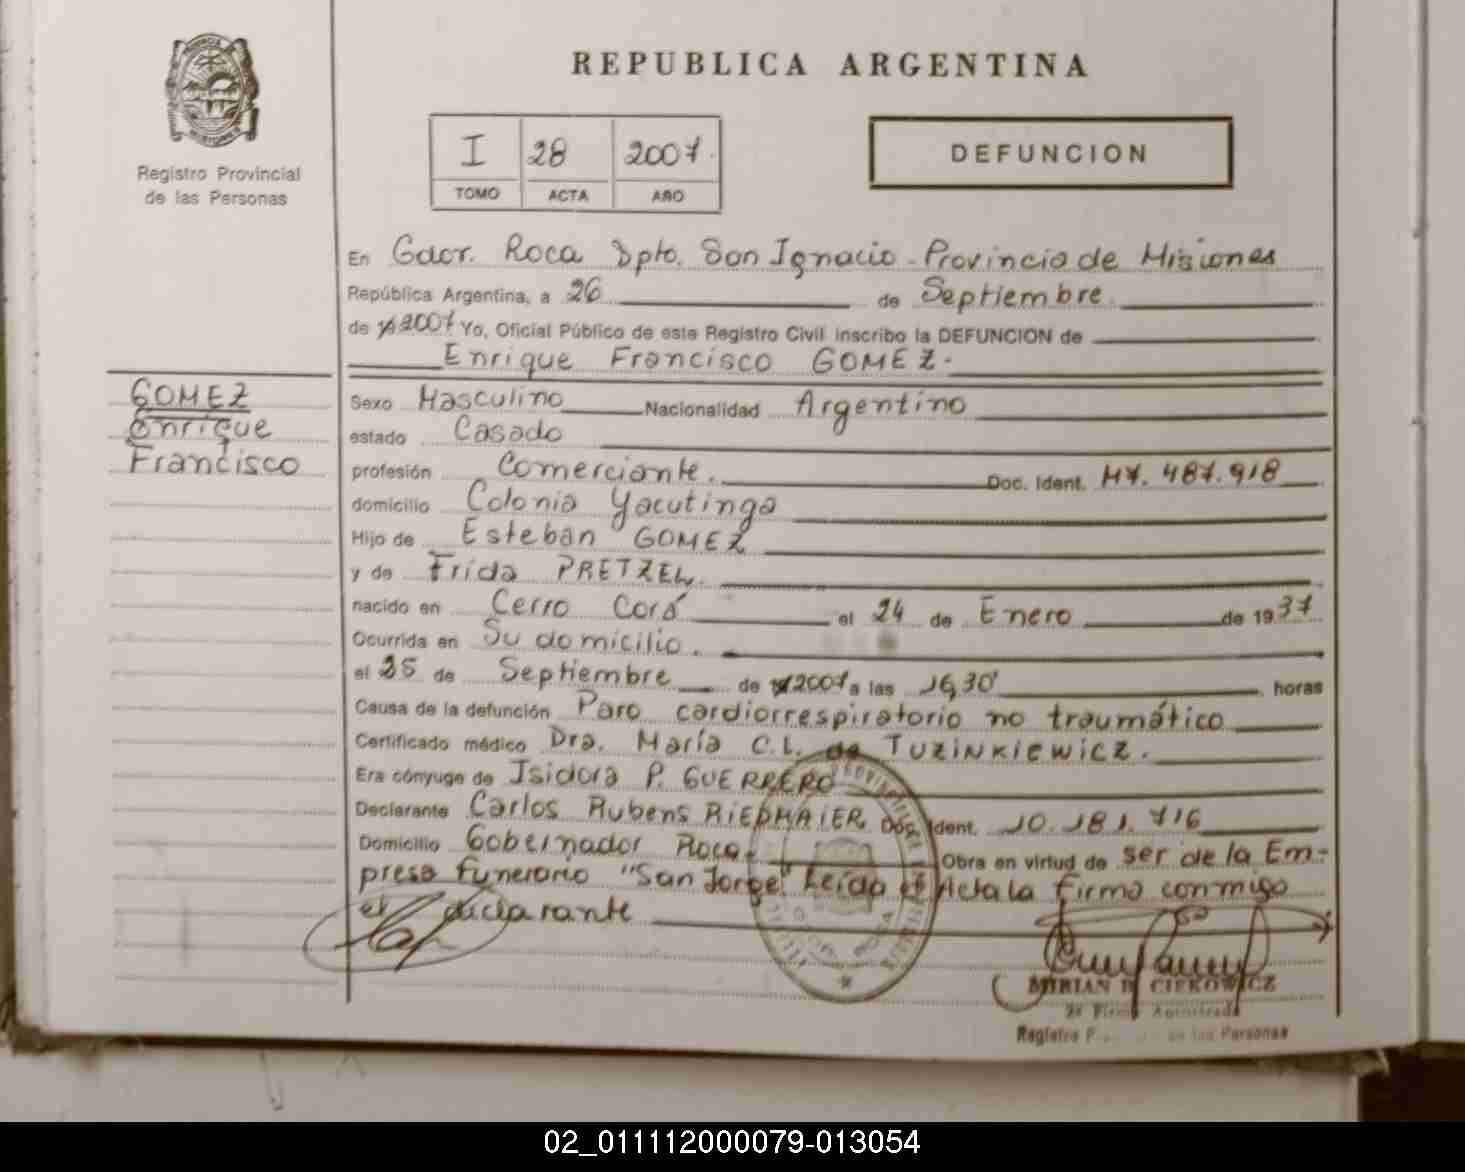 REPUBLICA ARGENTINA
Registro Provincial
de las Personas
I 28 2007.
TOMO ACTA AÑO
DEFUNCION
En Gdor. Roca Dpto. San Ignacio - Provincia de Misiones
República Argentina, a 26 de Septiembre
de 2007 Yo, Oficial Público de este Registro Civil inscribo la DEFUNCION de
Enrique Francisco GOMEZ.
GOMEZ
Enrique
Francisco
Sexo Masculino Nacionalidad Argentino
estado Casado
profesión Comerciante. Doc. Ident. M7. 487.918
domicilio Colonia Yacutinga
Hijo de Esteban GOMEZ
y de Frida PRETZEL.
nacido en Cerro Corá el 24 de Enero de 1937
Ocurrida en Su domicilio.
el 25 de Septiembre de 2007 a las 16,30' horas
Causa de la defunción Paro cardiorrespiratorio no traumático
Certificado médico Dra. María C.L. de TUZINKIEWICZ.
Era cónyuge de Isidora P. GUERRERO
Declarante Carlos Rubens RIEDMAIER Doc. Ident. 10.181.716
Domicilio Gobernador Roca. Obra en virtud de ser de la Em-
presa funerario "San Jorge" Leída el Acta la firma conmigo
el diclarante
MIRIAN B. CIEKOWICZ
2ª Firma Autorizada
Registro de las Personas
02_011112000079-013054